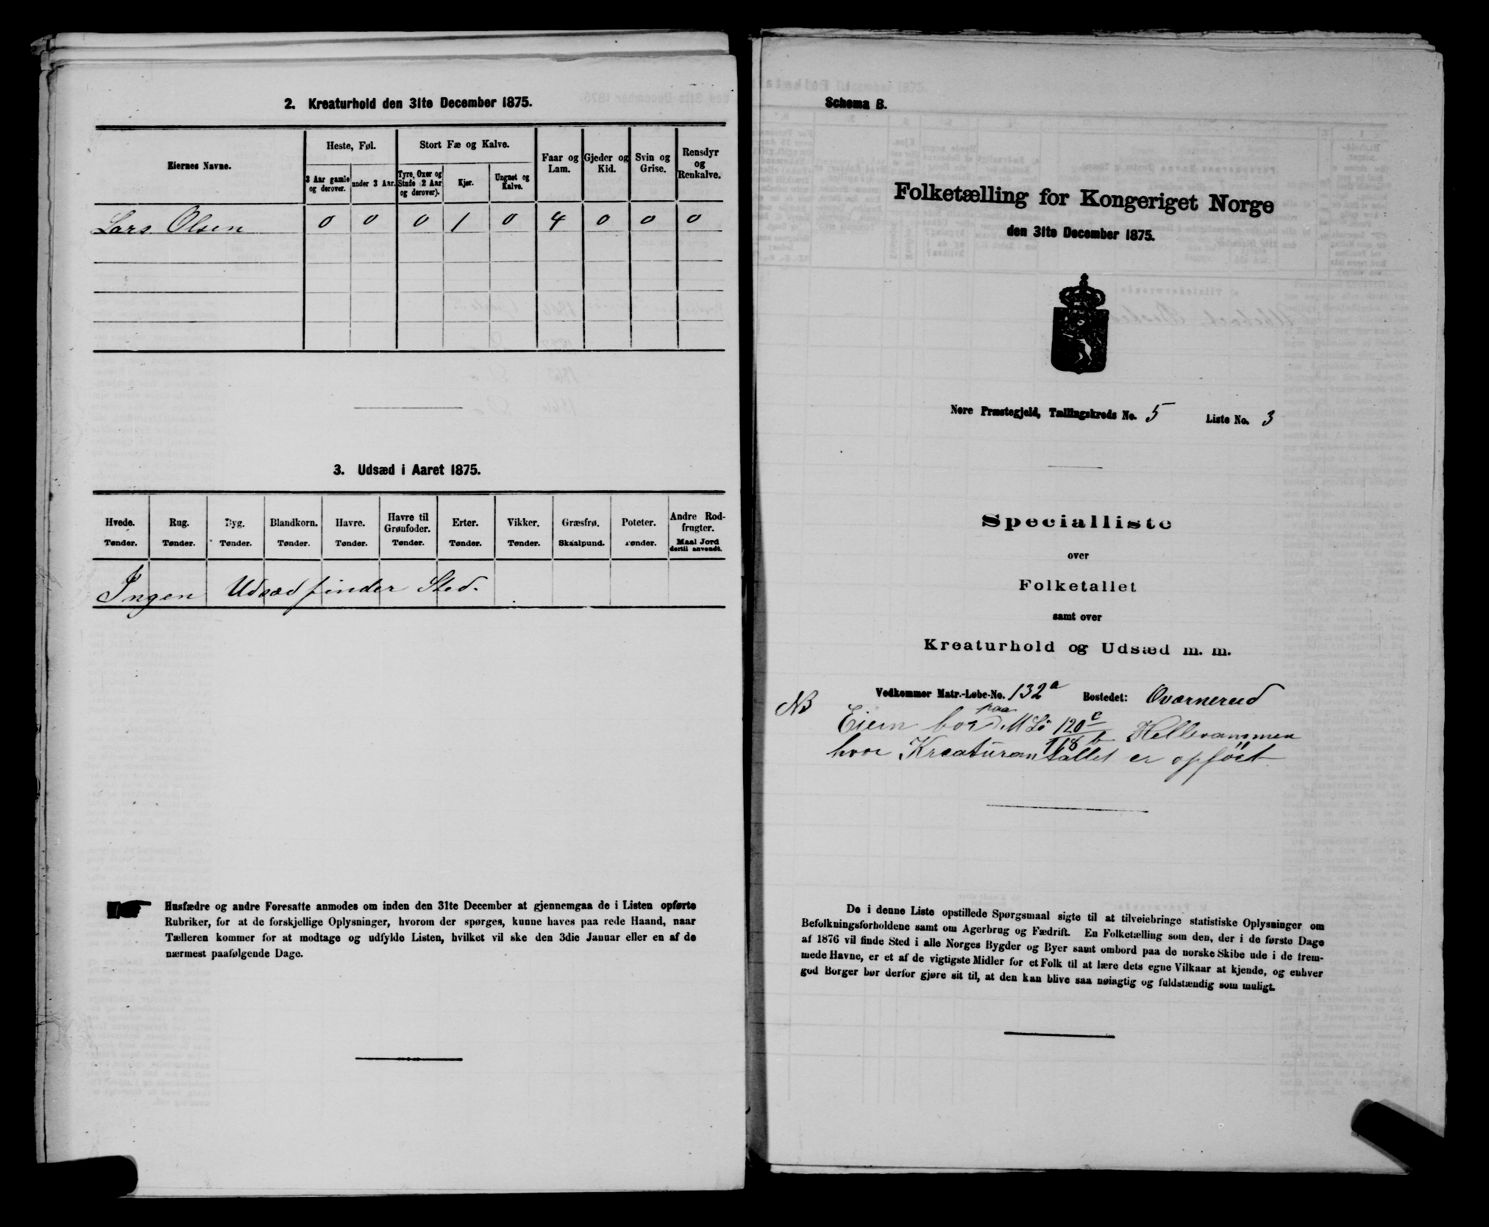 2. Kreaturhold den 31te December 1875.
Eiernes Navne.
Heste, Føl.
Stort Fæ og Kalve.
Faar og Lam.
Gjeder og Kid.
Svin og Grise.
Rensdyr og Renkalve.
3 Aar gamle og derover.
under 3 Aar.
Tyre, Oxer og Stude (2 Aar og derover).
Kjør.
Ungnøt og Kalve.
Lars Olsen 0 0 0 1 0 4 0 0 0
3. Udsæd i Aaret 1875.
Hvede. Rug. Byg. Blandkorn. Havre. Havre til Grønfoder. Erter. Vikker. Græsfrø. Poteter. Andre Rodfrugter.
Tønder. Tønder. Tønder. Tønder. Tønder. Tønder. Tønder. Tønder. Skaalpund. Tønder. Maal Jord dertil anvendt.
Ingen Udsæd finder Sted.
Husfædre og andre Foresatte anmodes om inden den 31te December at gjennemgaa de i Listen opførte
Rubriker, for at de forskjellige Oplysninger, hvorom der spørges, kunne haves paa rede Haand, naar
Tælleren kommer for at modtage og udfylde Listen, hvilket vil ske den 3die Januar eller en af de
nærmest paafølgende Dage.
Schema B.
Folketælling for Kongeriget Norge
den 31te December 1875.
Nore Præstegjeld, Tællingskreds No. 5 Liste No. 3
Specialliste
over
Folketallet
samt over
Kreaturhold og Udsæd m. m.
Vedkommer Matr.-Løbe-No. 132a Bostedet: Oværnerud
NB Eiern bor paa M Lö 120c/168b Hellevammen
hvor Kreaturantallet er opført
De i denne Liste opstillede Spørgsmaal sigte til at tilveiebringe statistiske Oplysninger om
Befolkningsforholdene samt om Agerbrug og Fædrift. En Folketælling som den, der i de første Dage
af 1876 vil finde Sted i alle Norges Bygder og Byer samt ombord paa de norske Skibe ude i de frem-
mede Havne, er et af de vigtigste Midler for et Folk til at lære dets egne Vilkaar at kjende, og enhver
god Borger bør derfor gjøre sit til, at den kan blive saa nøiagtig og fuldstændig som muligt.